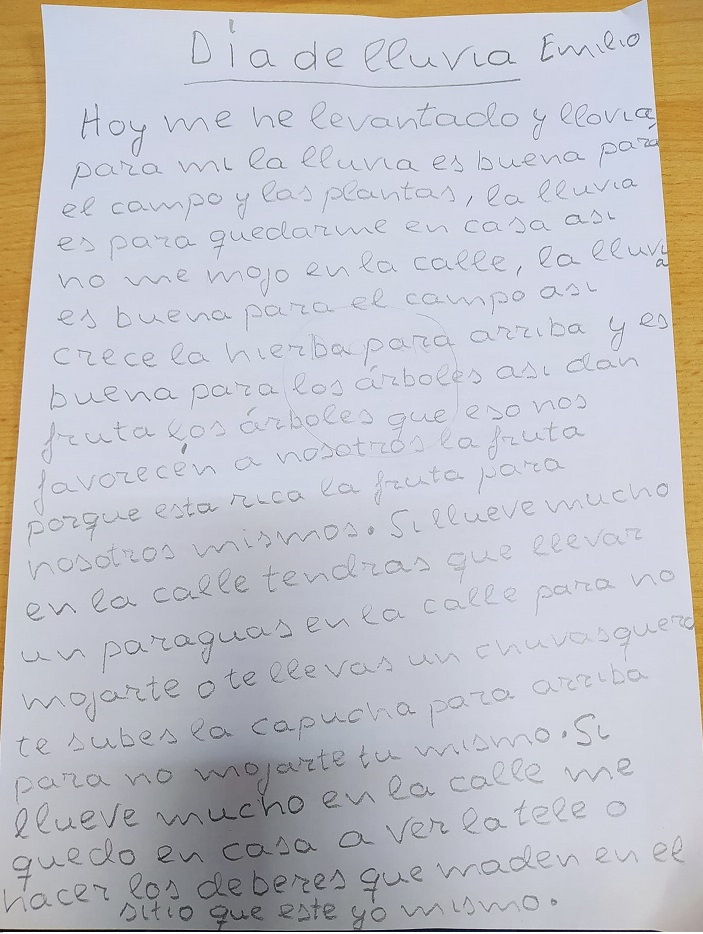 Dia de lluvia Emilio
Hoy me he levantado y llovia,
para mi la lluvia es buena para
el campo y las plantas, la lluvia
es para quedarme en casa asi
no me mojo en la calle, la lluvia
es buena para el campo asi
crece la hierba para arriba y es
buena para los árboles asi dan
fruta los árboles que eso nos
favorecen a nosotros la fruta
porque esta rica la fruta para
nosotros mismos. Si llueve mucho
en la calle tendras que llevar
un paraguas en la calle para no
mojarte o te llevas un chuvasquero
te subes la capucha para arriba
para no mojarte tu mismo. Si
llueve mucho en la calle me
quedo en casa a ver la tele o
hacer los deberes que maden en el
sitio que este yo mismo.